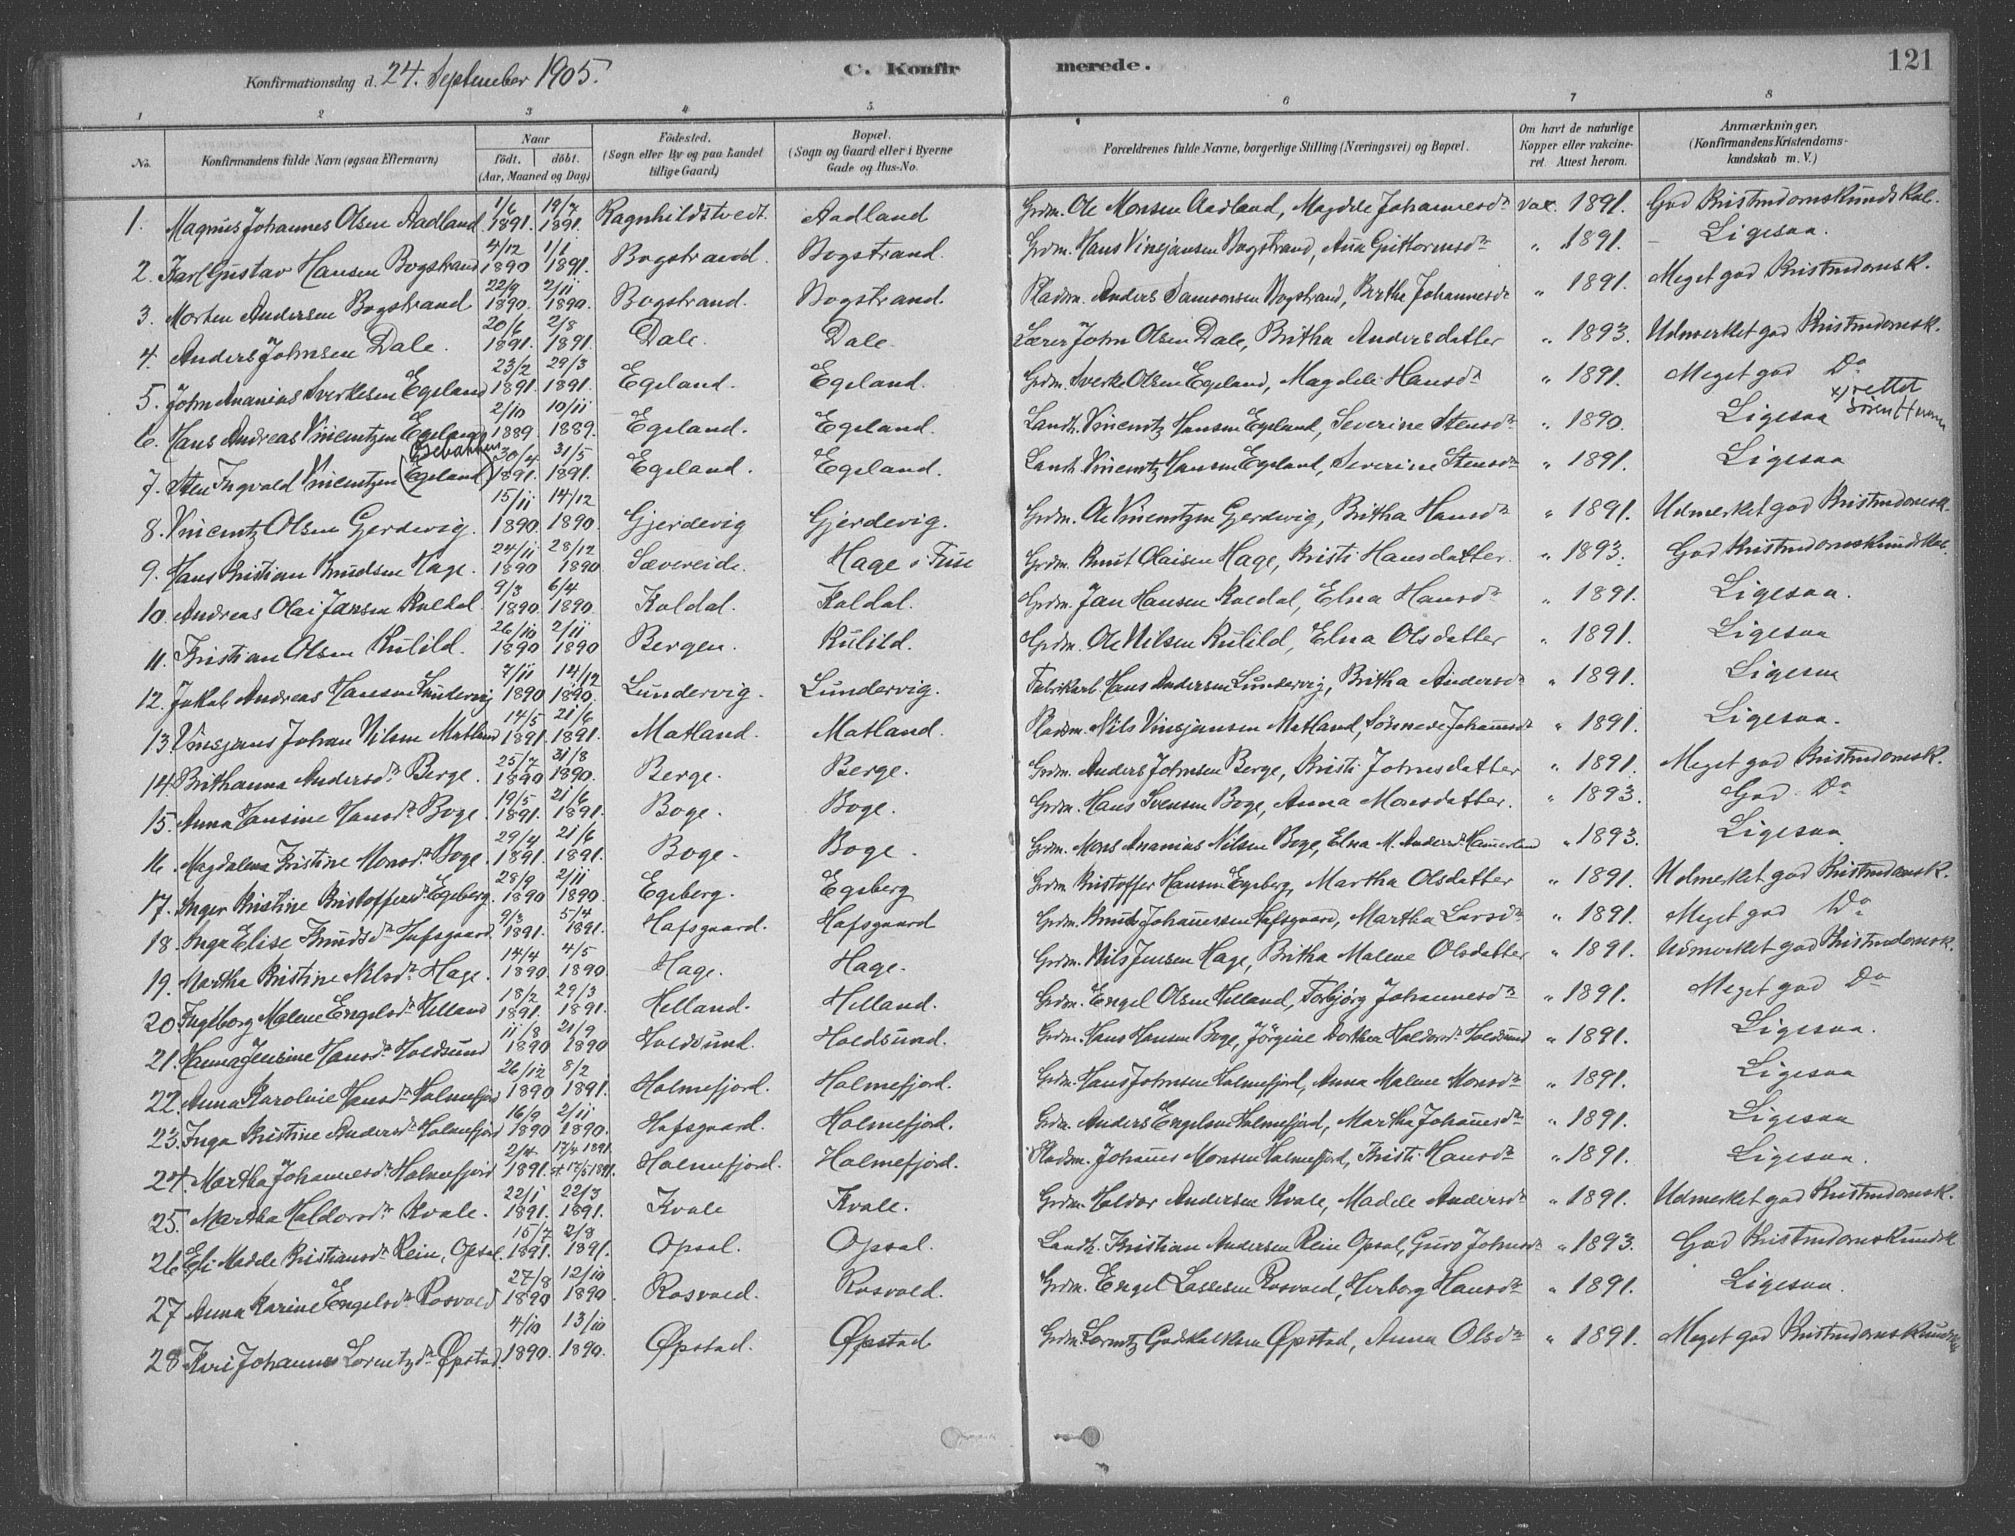 Konfirmationsdag d. 24. September 1905.
C. Konfirmerede.
121
1 2 3 4 5. 6 7 8
No. Konfirmandens fulde Navn (ogsaa Efternavn) Naar födt. döbt. (Aar, Maaned og Dag) Födested. (Sogn eller By og paa Landet tillige Gaard) Bopæl. (Sogn og Gaard eller i Byerne Gade og Hus-No. Forældrenes fulde Navne, borgerlige Stilling (Næringsvei) og Bopæl. Om havt de naturlige Kopper eller vakcineret. Attest herom. Anmærkninger. (Konfirmandens Kristendomskundskab m. V.)
1. Magnus Johannes Olsen Aadland 1/6 1891. 19/7 1891. Ragnhildstvedt. Aadland Grdm. Ole Monsen Aadland, Magdele Johannesdr vax. 1891. God Kristendomskundskab.
2. Karl Gustav Hansen Bogstrand 4/12 1890 1/1 1891. Bogstrand. Bogstrand. Grdm. Hans Vinsjansen Bogstrand, Anna Guttormsdr " 1891. - Ligesaa.
3. Morten Andersen Bogstrand 22/9 1890. 2/11 1890. Bogstrand. Bogstrand. Pladsm. Anders Samsonsen Bogstrand, Bertha Johannesdr " 1891. Meget god Kristendomsk.
4. Anders Johnsen Dale. 20/6 1891. 2/8 1891. Dale. Dale. Lærer John Olsen Dale, Britha Andersdatter " 1893. Udmerket god Kristendomsk.
5. John Ananias Sverkesen Egeland 23/2 1891. 29/3 1891. Egeland. Egeland. Grdm. Sverke Olsen Egeland, Magdele Hansdr " 1891. Meget god Do
6. Hans Andreas Vincentzen Egeland 2/10 1889 10/11 1889. Egeland. Egeland. Landh. Vincentz Hansen Egeland, Severine Stensdr " 1890. Ligesaa x) rettet
7. Sten Ingvald Vincentzen (Egeland) 30/4 1891. 31/5 1891. Egeland. Egeland. Landh. Vincentz Hansen Egeland, Severine Stensdr " 1891. Ligesaa
8. Vincentz Olsen Gjerdevig. 15/11 1890 14/12 1890. Gjerdevig Gjerdevig. Grdm. Ole Vincentzen Gjerdevig, Britha Hansdr " 1891. Udmerket god Kristendomsk.
9. Hans Kristian Knudsen Hage. 24/11 1890 28/12 1890 Sævereide. Hage i Fuse Grdm. Knut Olaisen Hage, Kristi Hansdatter " 1893. God Kristendomskundskab.
10. Andreas Olai Jansen Koldal. 9/3 1890 6/4 1890 Koldal. Koldal. Grdm. Jan Hansen Koldal, Elna Hansdr " 1891. Ligesaa.
11. Kristian Olsen Kulild. 26/10 1890 2/11 1890 Bergen. Kulild. Grdm. Ole Nilsen Kulild, Elna Olsdatter " 1891. Ligesaa
12. Jakob Andreas Hansen Lundervig 7/11 1890 14/12 1890. Lundervig. Lundervig. Fabrikarb. Hans Andersen Lundervig, Britha Andersdr " 1891. Ligesaa
13. Vinsjans Johan Nilsen Matland 14/5 1891. 21/6 1891. Matland. Matland. Pladsm. Nils Vinsjansen Matland, Sönneve Johannesdr " 1891. Ligesaa.
14. Brithanna Andersdr Berge. 25/7 1890 31/8 1890. Berge. Berge. Grdm. Anders Johnsen Berge, Kristi Johnsdatter " 1891. Meget god Kristendomsk.
15. Anna Hansine Hansdr Boge. 19/5 1891. 21/6 1891. Boge. Boge. Grdm. Hans Svensen Boge, Anna Monsdatter. " 1893. God Do
16. Magdalena Kristine Monsdr Boge. 29/4 1891. 21/6 1891. Boge. Boge. Grdm. Mons Ananias Nilsen Boge, Elna M. Andersdr Hammerland " 1893. Ligesaa
17. Inger Kristine Kristoffersdr Egeberg. 28/9 1890 2/11 1890. Egeberg. Egeberg Grdm Kristoffer Hansen Egeberg, Martha Olsdatter " 1891. Udmerket god Kristendomsk.
18. Inga Elise Knudsdr Hafsgaard 9/3 1891. 5/4 1891. Hafsgaard. Hafsgaard Grdm. Knut Johannessen Hafsgaard, Martha Larsdr " 1891. Meget god Do
19. Martha Kristine Nilsdr Hage. 14/4 1890. 4/5 1890. Hage. Hage. Grdm. Nils Jensen Hage, Britha Malene Olsdatter " 1891. Udmerket god Kristendomsk.
20. Ingeborg Malene Engelsdr Helland 18/2 1891. 29/3 1891. Helland. Helland. Grdm. Engel Olsen Helland, Torbjörg Johannesdr " 1891. Meget god Do
21. Hanna Jensine Hansdr Holdsund 11/8 1890 21/9 1890 Holdsund. Holdsund. Grdm. Hans Hansen Boge, Jörgine Dorthea Haldorsdr Holdsund " 1891. Ligesaa.
22. Anna Karolnie Hansdr Holmefjord 26/12 1890 8/2 1891. Holmefjord. Holmefjord. Grdm. Hans Johnsen Holmefjord, Anna Malene Monsdr " 1891. Ligesaa
23. Inga Kristine Andersdr Holmefjord 16/9 1890 2/11 1890. Hafsgaard. Holmefjord. Grdm. Anders Engelsen Holmefjord, Martha Johannesdr " 1891. Ligesaa
24. Martha Johannesdr Holmefjord 2/4 1891. 17/4 1891. st 17/5 1891. Holmefjord. Holmefjord. Pladsm. Johannes Monsen Holmefjord, Kristi Hansdr " 1891. Ligesaa.
25. Martha Haldorsdr Kvale. 22/1 1891. 22/3 1891. Kvale Kvale. Grdm. Haldor Andersen Kvale, Madele Andersdr " 1891. Udmerket god Kristendomsk.
26. Eli Madele Kristiansdr Rein, Opsal. 15/7 1891. 2/8 1891. Opsal. Opsal. Landh. Kristian Andersen Rein Opsal, Guro Johnsdr " 1893. God Kristendomskundsk.
27. Anna Karine Engelsdr Rosvold 27/8 1890 12/10 1890. Rosvold. Rosvold. Grdm. Engel Lassesen Rosvold, Herborg Hansdr " 1891. Ligesaa.
28. Kari Johannes Lorentzdr Øpstad. 4/10 1890. 13/10 1890. Øpstad. Øpstad Grdm. Lorentz Godskalksen Øpstad, Anna Olsdr " 1891. Meget god Kristendomskundsk.